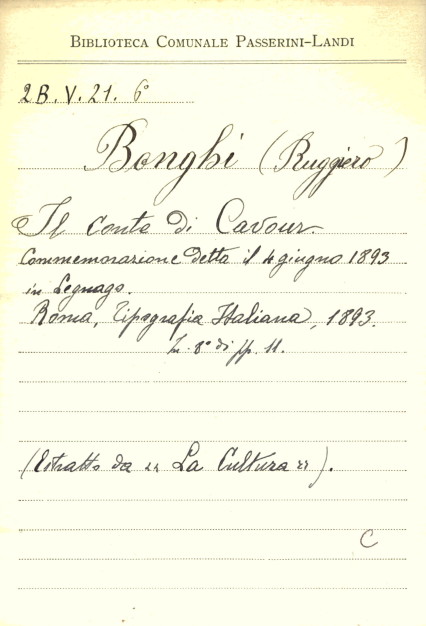 BIBLIOTECA COMUNALE PASSERINI-LANDI
2 B. V. 21. 6°
Bonghi (Ruggiero)
Il conte di Cavour.
Commemorazione detta il 4 giugno 1893
in Legnago.
Roma, Tipografia Italiana, 1893.
In 8° di pp. 11.
(Estratto da „ La Cultura „).
C